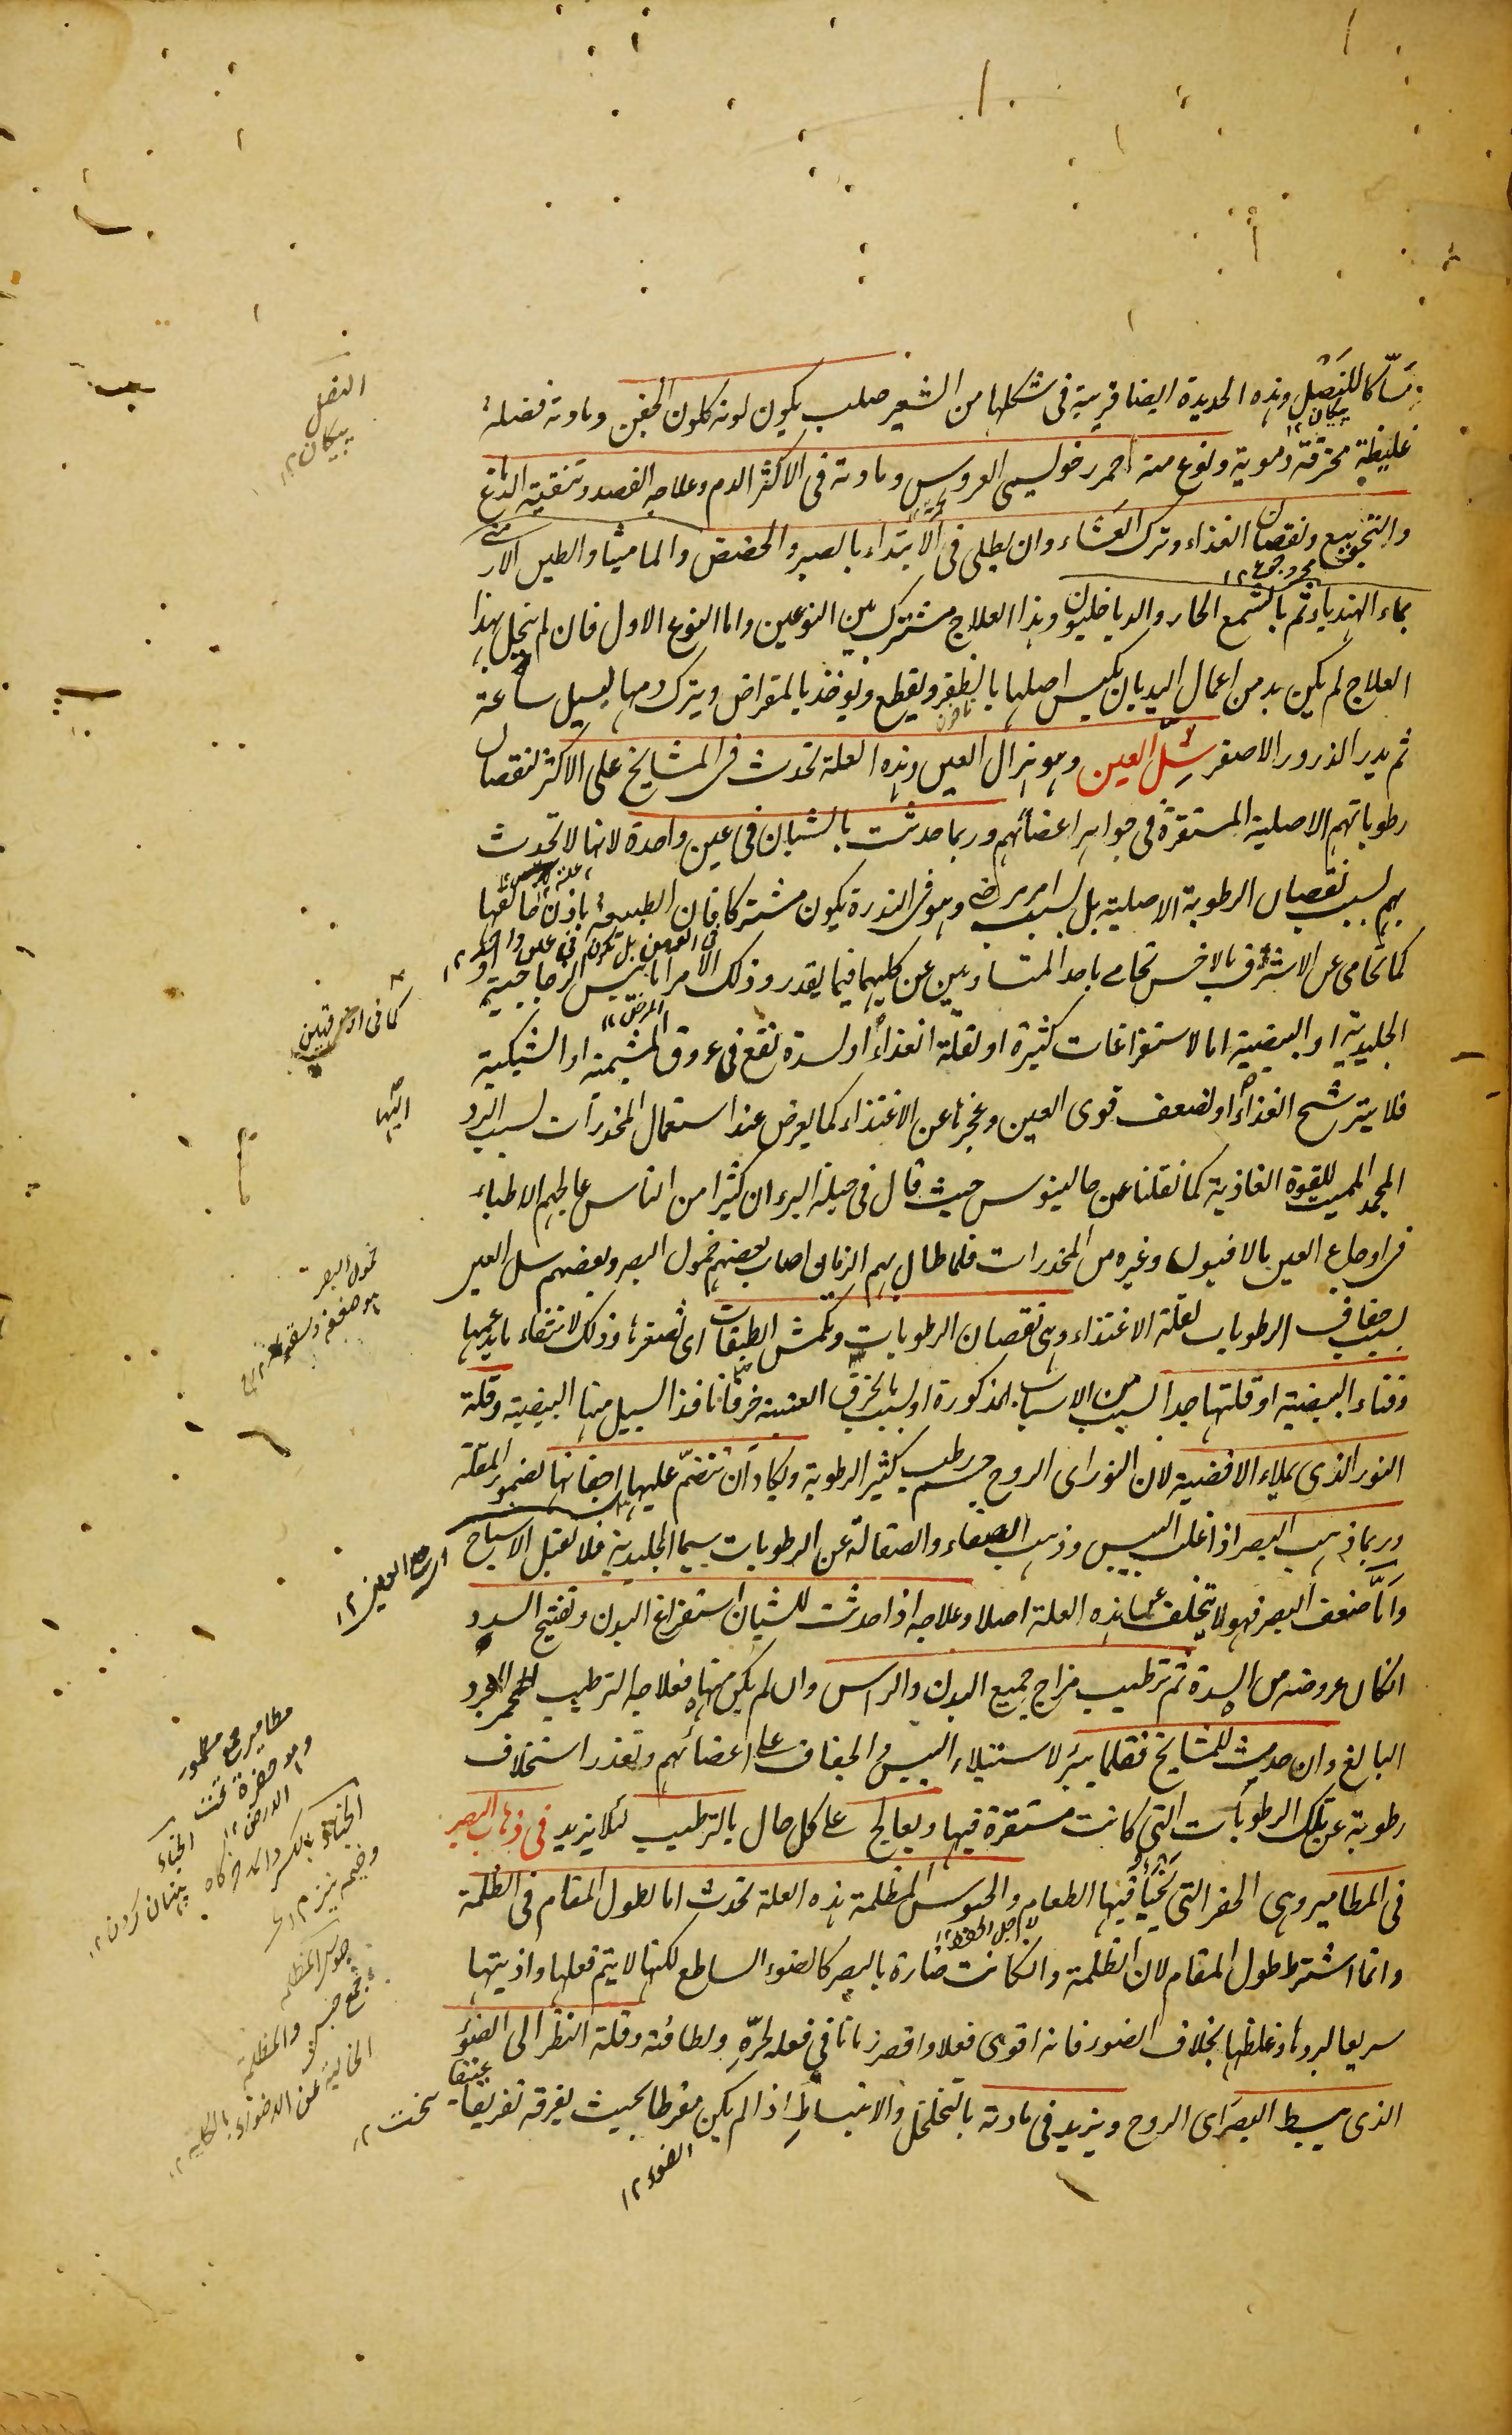 مسّاكا للنَصْل وهذه الحديدة ايضا قريبة فى شكلها من الشعير صلب يكون لونه كلون الجفن ومادته فضلة
غليظة محترقة دموية ونوع منه احمر رخو ليسمى العروس ومادته فى الاكثر الدم وعلاجه الفصد وتنقية الدماغ
والتجويع ونقصان الغذاء وترك العَشاء وان يطلى فى الابتداء بالصبر والحضض والماميثا والطين الارمنى
بماء الهندباء ثم بالشمع الحار والدياخليون وهذا العلاج مشترك بين النوعين واما النوع الاول فان لم ينحل بهذا
العلاج لم يكن بد من اعمال اليد بان يكبس اصلها بالظفر ويقطع ويوخذ بالمقراض ويترك دمها ليسيل ساعة
ثم يدر الذرور الاصفر سُلّ العين وهو هزال العين وهذه العلة تحدث فى المشايخ على الاكثر لنقصان
رطوباتهم الاصلية المستقرة فى جواهر اعضائهم وربما حدثت بالشبان فى عين واحدة لانها لا تحدث
بهم لسبب نقصان الرطوبة الاصلية بل لسبب امر مرضى وهو فى الندرة يكون مشتركا فان الطبيعة باذن خالقها
كما تحامى عن الاشرف بالاخس تحامى باحد المتساويين عن كليهما فيما يقدر وذلك الامر اما يبس الزجاجية او
الجليدية او البيضية اما لاستفراغات كثيرة او لقلة الغذاء او لسدة تقع فى عروق المشيمة او الشبكية
فلا يترشح الغذاء او لضعف قوى العين وعجزها عن الاغتذاء كما يعرض عند استعمال المخدرات لسبب البرد
المجمد المميت للقوة الغاذية كما نقلنا عن جالينوس حيث قال فى حيلة البرء ان كثيرا من الناس عالجهم الاطباء
فى اوجاع العين بالافيون وغيره من المخدرات فلما طال بهم الزمان اصاب بعضهم خمول البصر وبعضهم سل العين
لسبب جفاف الرطوبات لقلة الاغتذاء وهى نقصان الرطوبات وتكمش الطبقات اى تصغرها وذلك لانتفاء ما يدعمها
وفناء البيضية او قلتها جدا لسبب من الاسباب المذكورة او لسبب انخراق العنبية خرقا نافذا لسيل منها البيضية وقلة
النور الذى يملاء الافضية لان النور اى الروح جسم رطب كثير الرطوبة ويكاد ان تنضمّ عليها اجفانها لضمور المقلة
وربما ذهب البصر اذا غلب اليبس وذهب الصفاء والصقالة عن الرطوبات سيما الجليدية فلا تقبل الاشباح
وامّا ضعف البصر فهو لا يتخلف عن هذه العلة اصلا وعلاجه اذا حدثت للشبان استفراغ البدن وتفتيح السدد
انكان عروضه من السدة ثم ترطيب مزاج جميع البدن والراس وان لم يكن منها فعلاجه الترطيب المجرد
البالغ وان حدث للمشايخ فقلما يبرء لاستيلاء اليبس والجفاف على اعضائهم وتعذر استخلاف
رطوبة عن تلك الرطوبات التى كانت مستقرة فيها ويعالج على كل حال بالترطيب لئلا يزيد فى ذهاب البصر
فى المطامير وهى الحفر التى يُخبَأ فيها الطعام والحبوس المظلمة هذه العلة تحدث اما لطول المقام فى الظلمة
وانما اشترط طول المقام لان الظلمة وانكانت ضارة بالبصر كالضوء الساطع لكنها لا يتم فعلها واذيتها
سريعا لبردها وغلظها بخلاف الضوء فانه اقوى فعلا واقصر زمانا فى فعله لحرّه ولطافته وقلة النظر الى الضوء
الذى يبسط البصر اى الروح ويزيد فى مادته بالتخلخل والانبساط اذا لم يكن مفرطا بحيث يفرقه تفريقا عنيفا
النصل
پيكان ١٢
پيكان ١٢
المرض ١٢
اليها
خمول البصر
مطامير جمع مطمور
وهو حفرة تحت
الارض ١٢
الخباء
پنهان كردن ١٢
والمظلمة
الخالية عن الضوء بالكلية ١٢
سخت ١٢
الضوء ١٢